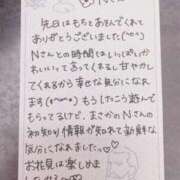 Nさんへ
先日はもちとあそんでくれて
ありがとうございました(^o^)
Nさんとの時間はいっぱいか
わいいってあってくれるし甘やかし
てくれるから幸せな気分になれ
ます(*^^*) もうしたこう遊んで
もらってるけど、まさかのNさんの
初知り情報が知れて新鮮な
気分になれました、
お花見は楽しめま
したか？